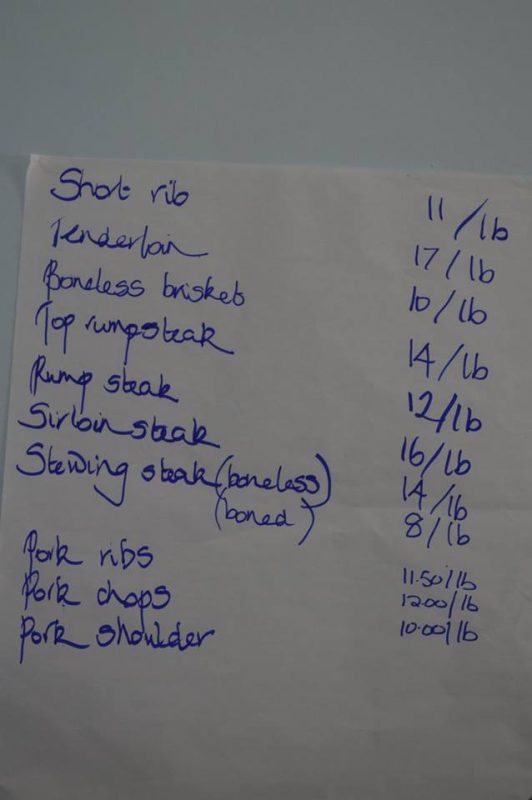 Short rib 11/lb
Tenderloin 17/lb
Boneless brisket 10/lb
Top rumpsteak 14/lb
Rump steak 12/lb
Sirloin steak 16/lb
Stewing steak (boneless) 14/lb
(boned) 8/lb
Pork ribs 11.50/lb
Pork chops 12.00/lb
Pork shoulder 10.00/lb